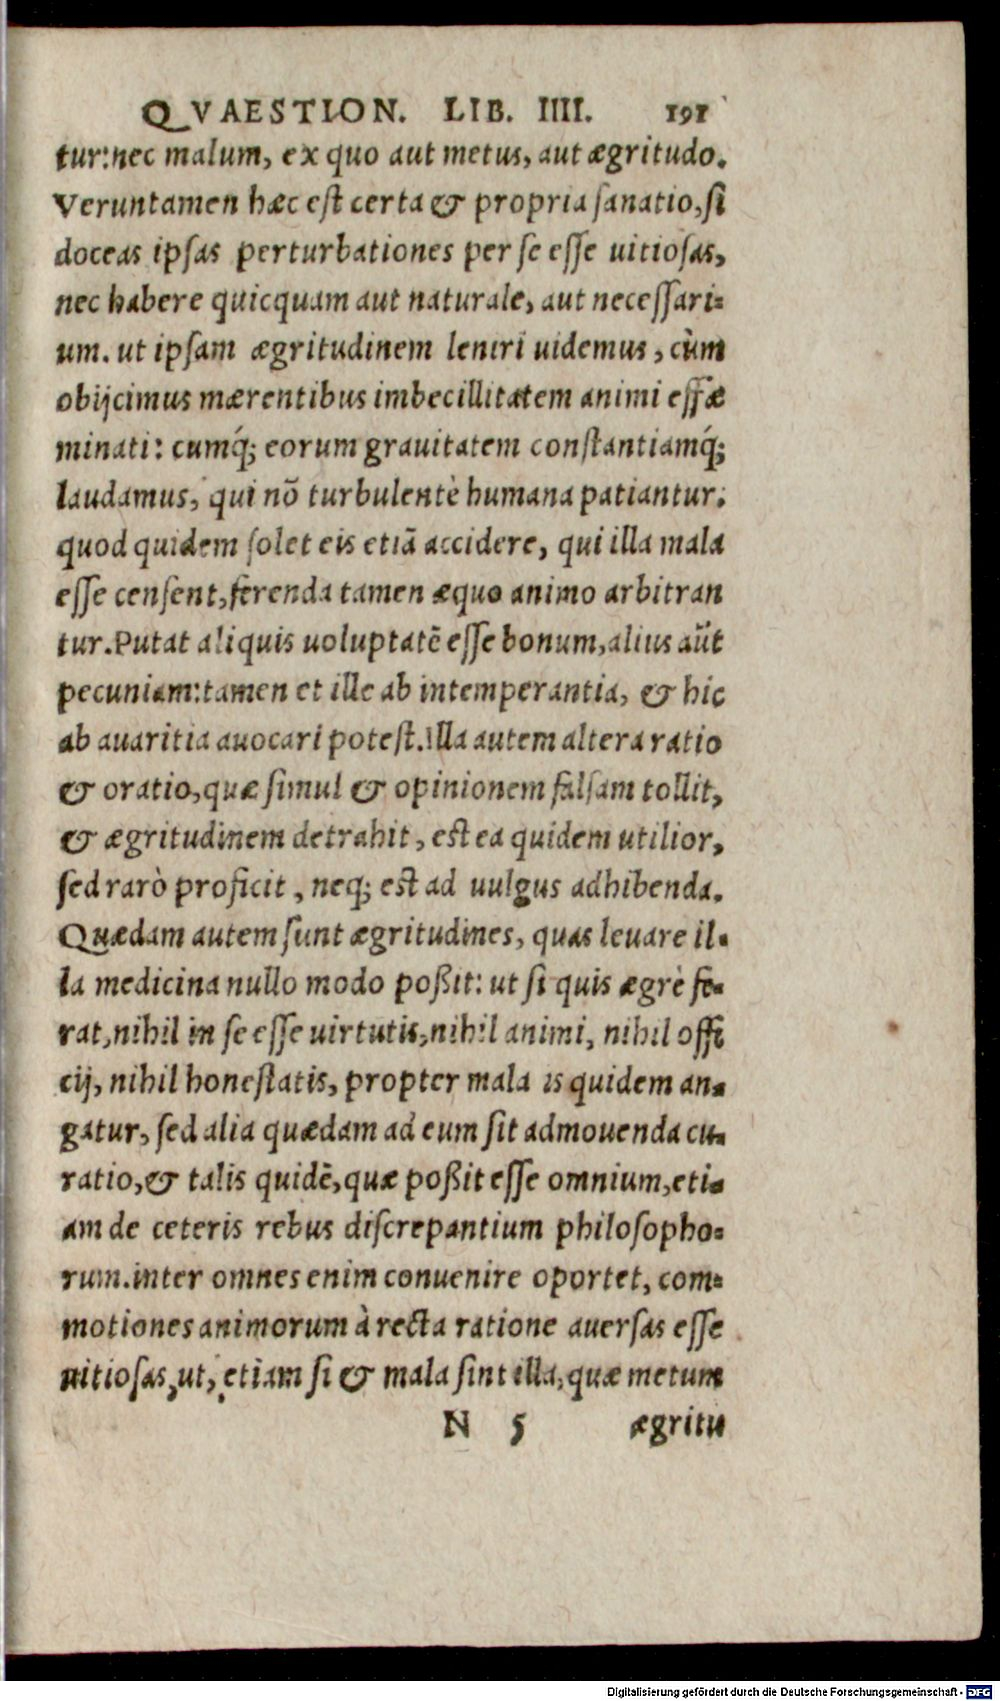 QVAESTION. LIB. IIII. 191
tur: nec malum, ex quo aut metus, aut ægritudo.
Veruntamen hæc est certa & propria sanatio, si
doceas ipsas perturbationes per se esse uitiosas,
nec habere quicquam aut naturale, aut necessari-
um. ut ipsam ægritudinem leniri uidemus, cùm
obijcimus mærentibus imbecillitatem animi effœ
minati: cumq́; eorum grauitatem constantiamq́;
laudamus, qui nõ turbulentè humana patiantur.
quod quidem solet eis etiã accidere, qui illa mala
esse censent, ferenda tamen æquo animo arbitran
tur. Putat aliquis uoluptatẽ esse bonum, alius aũt
pecuniam: tamen et ille ab intemperantia, & hic
ab auaritia auocari potest. Illa autem altera ratio
& oratio, quæ simul & opinionem falsam tollit,
& ægritudinem detrahit, est ea quidem utilior,
sed rarò proficit, neq; est ad uulgus adhibenda.
Quædam autem sunt ægritudines, quas leuare il-
la medicina nullo modo poßit: ut si quis ægrè fe-
rat, nihil in se esse uirtutis, nihil animi, nihil offi
cij, nihil honestatis, propter mala is quidem an-
gatur, sed alia quædam ad eum sit admouenda cu-
ratio, & talis quidẽ, quæ poßit esse omnium, eti-
am de ceteris rebus discrepantium philosopho-
rum. inter omnes enim conuenire oportet, com-
motiones animorum à recta ratione auersas esse
uitiosas, ut, etiam si & mala sint illa, quæ metum
N 5 ægritu
Digitalisierung gefördert durch die Deutsche Forschungsgemeinschaft - DFG